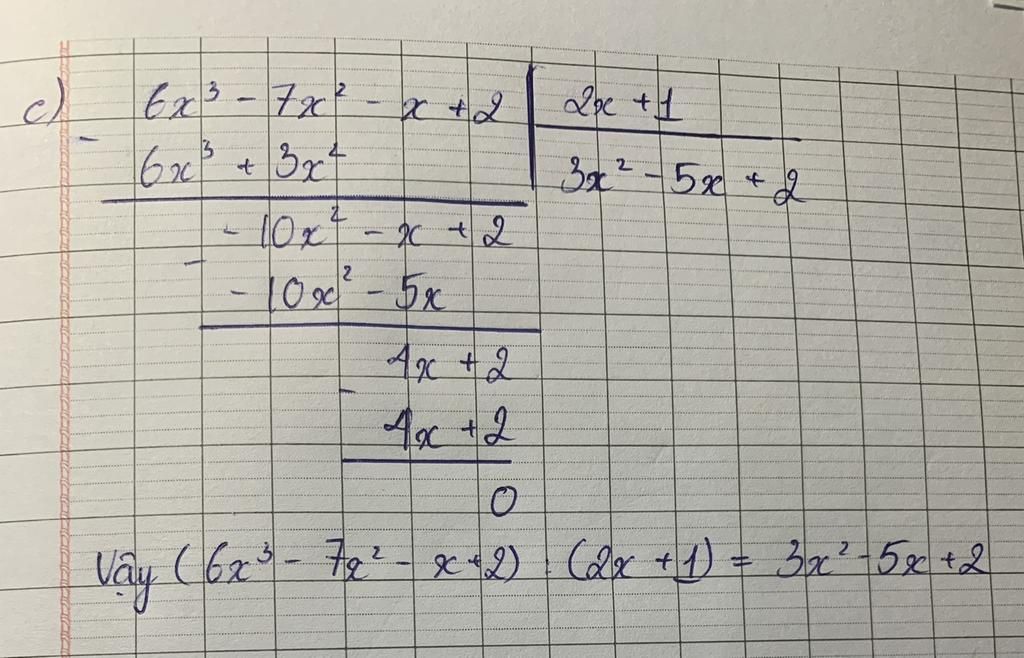 c) 6x³ - 7x² - x + 2 | 2x + 1
- 6x³ + 3x² | 3x² - 5x + 2
- 10x² - x + 2
- - 10x² - 5x
4x + 2
- 4x + 2
0
Vậy (6x³ - 7x² - x + 2) : (2x + 1) = 3x² - 5x + 2